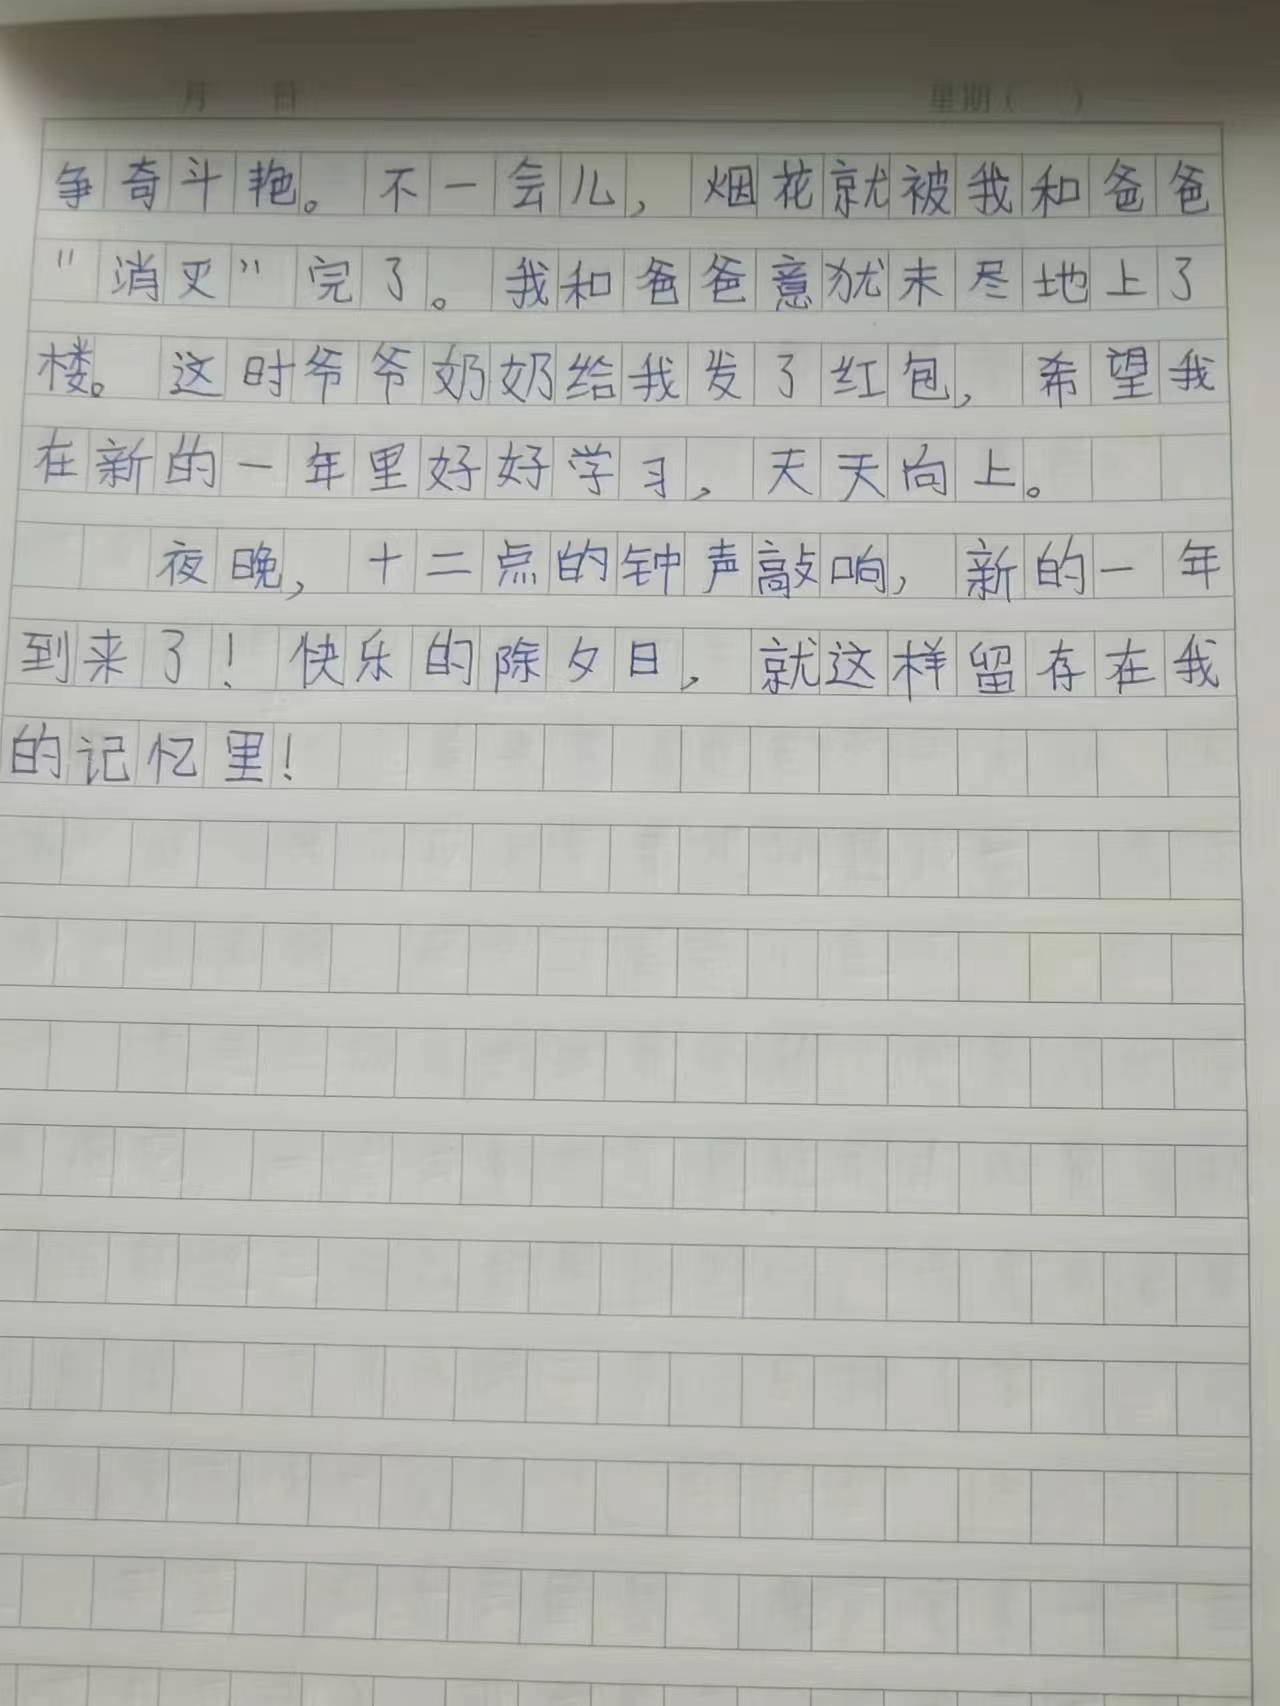 月 日 星期( )
争奇斗艳。不一会儿,烟花就被我和爸爸
"消灭"完了。我和爸爸意犹未尽地上了
楼。这时爷爷奶奶给我发了红包,希望我
在新的一年里好好学习,天天向上。
夜晚,十二点的钟声敲响,新的一年
到来了!快乐的除夕日,就这样留存在我
的记忆里!